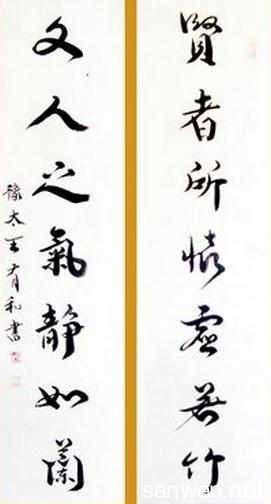 賢者所懷虛若竹
文人之氣靜如蘭
豫太王有和書
sanwen.net